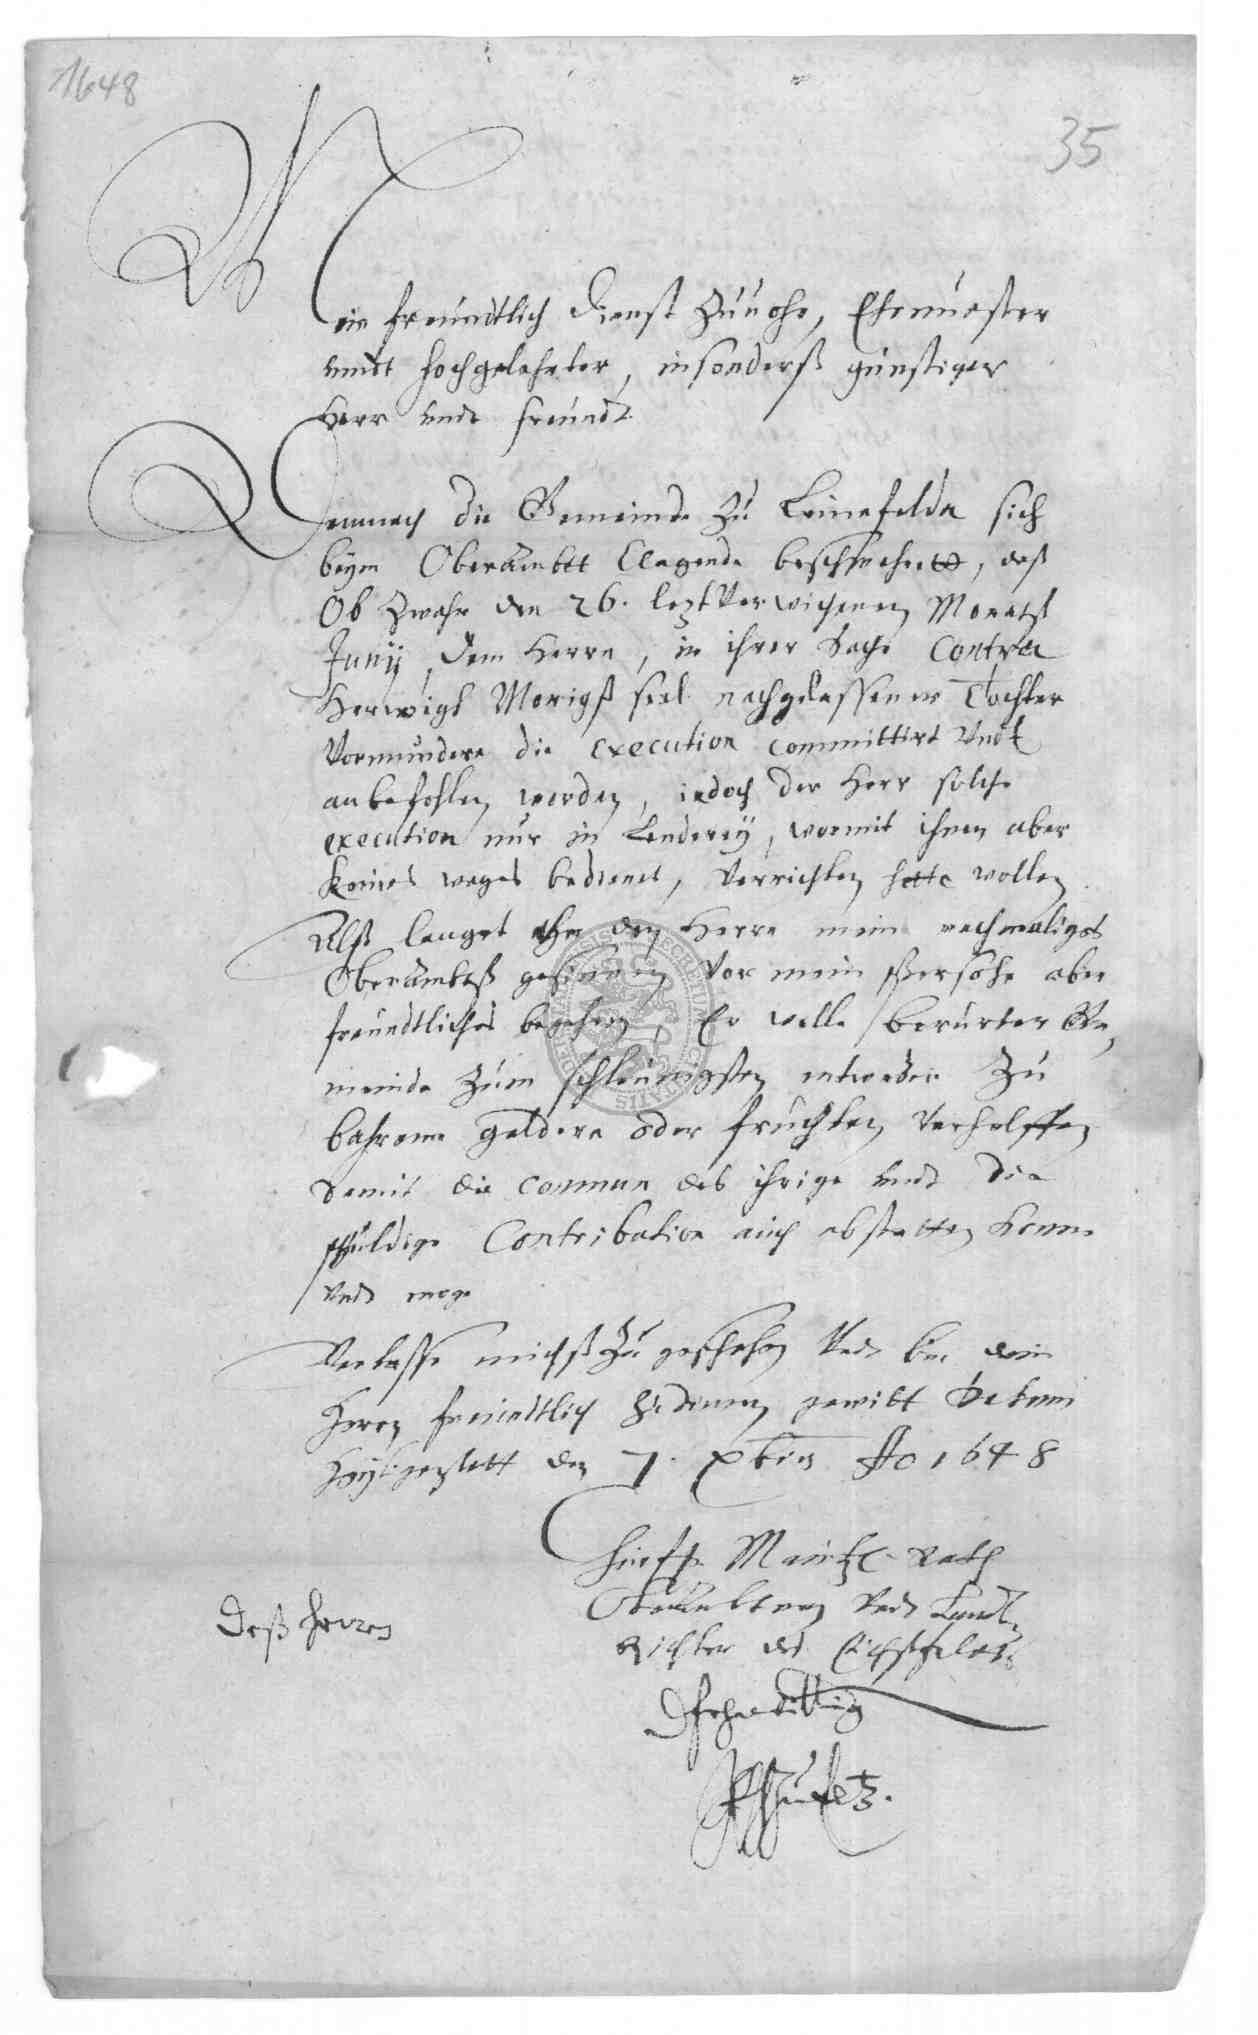 1648
35
Mein freundtlich Dienst Zuuohr, Ehrnuester
vndt hochgelehrter, insonderß günstiger
Herr vndt freundt
Demnach die Gemeinde Zu Leinefelda sich
beym Oberambtt Clagende beschwehrett, daß
Ob Zwahr den 26. leztverwichenen Monatß
Junÿ, dem Herrn, in ihrer Sache Contra
Herwigk Morigß seel. nachgelassener Tochter
Vormundere die execution committirt Undt
anbefohlen worden, iedoch der Herr solche
execution nur in Lenderey, wormit ihnen aber
keines weges bedienet, verrichten hette wollen
Alß langet ahn den Herrn mein nachmaliges
Oberambtß gesinnen vor mein Persohn aber
freundtliches begehren, Er wolle berurter Ge,
meinde Zum schleunigsten entweder Zu
bahrenn geldern oder fruchten verhelffen
Damit die commun das ihrige vndt die
schuldige Contribution auch abstatten konne
vndt moge
Verlasse michß Zu geschehen Undt bin dem
Herrn freundtlich Zudienen gewilt Datum
Heyligenstatt den 7. Xbris Ao 1648
Churfr. Maintz. Rath
Oberambtman Undt Landt,
Richter deß Eichßfeldß
Deß Herren